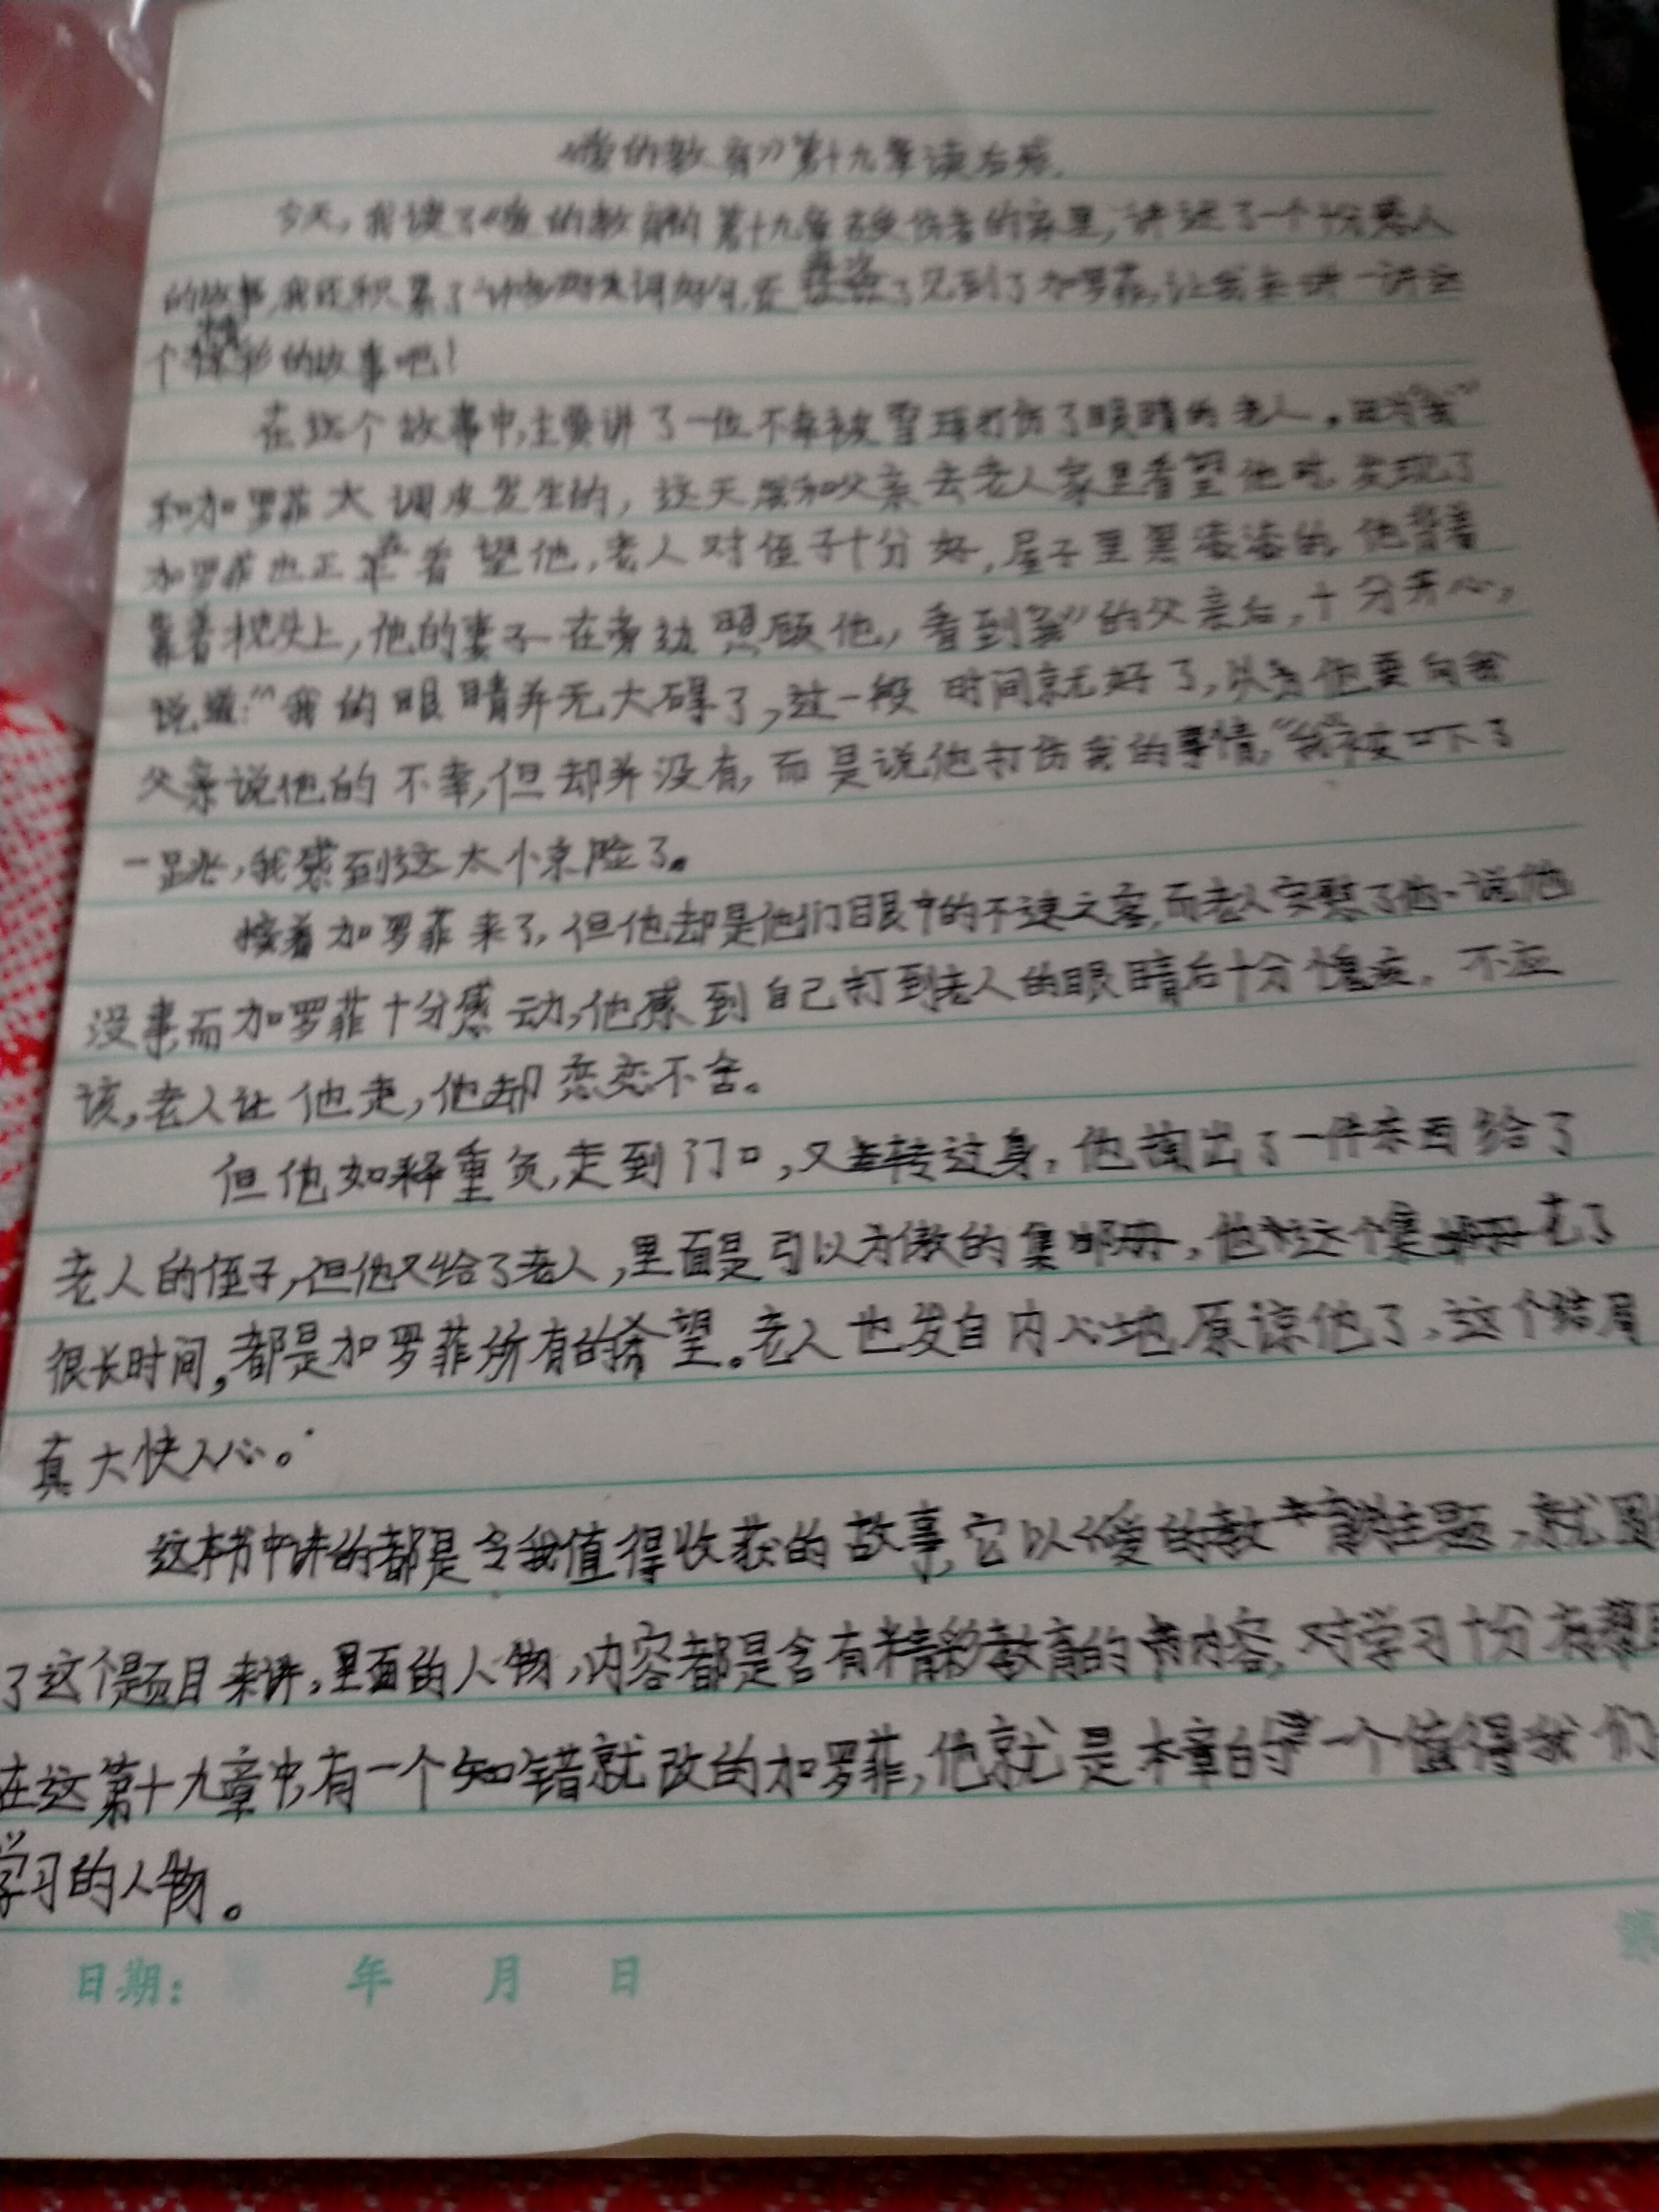 《爱的教育》第十九章读后感
今天,我读了《爱的教育》的第十九章在受伤者的家里,讲述了一个十分感人
的故事,我还积累了许多好词好句,还再次了见到了加罗菲,让我来讲一讲这
个精彩的故事吧!
在这个故事中,主要讲了一位不幸被雪球打伤了眼睛的老人。因为“我”
和加罗菲太调皮发生的,这天我和父亲去老人家里看望他时,发现了
加罗菲也正在看望他,老人对侄子十分好,屋子里黑漆漆的,他背着
靠着枕头上,他的妻子在旁边照顾他,看到“我”的父亲后,十分开心,
说道:“我的眼睛并无大碍了,过一段时间就好了,以为他要向我
父亲说他的不幸,但却并没有,而是说他打伤我的事情,“我被吓了
一跳,我感到这太惊险了。
接着加罗菲来了,但他却是他们眼中的不速之客,而老人安慰了他,说他
没事,而加罗菲十分感动,他感到自己打到老人的眼睛后十分愧疚,不应
该,老人让他走,他却恋恋不舍。
但他如释重负,走到门口,又转过身,他掏出了一件东西给了
老人的侄子,但他又给了老人,里面是引以为傲的集邮册,他对这个集邮册花了
很长时间,都是加罗菲所有的希望。老人也发自内心地原谅他了,这个结局
真大快人心。
这本书中讲的都是令我值得收获的故事,它以《爱的教育》为主题,就围
了这个题目来讲,里面的人物,内容都是含有精彩教育的书内容,对学习十分有帮
在这第十九章中,有一个知错就改的加罗菲,他就是本章的一个值得我们
学习的人物。
日期: 年 月 日